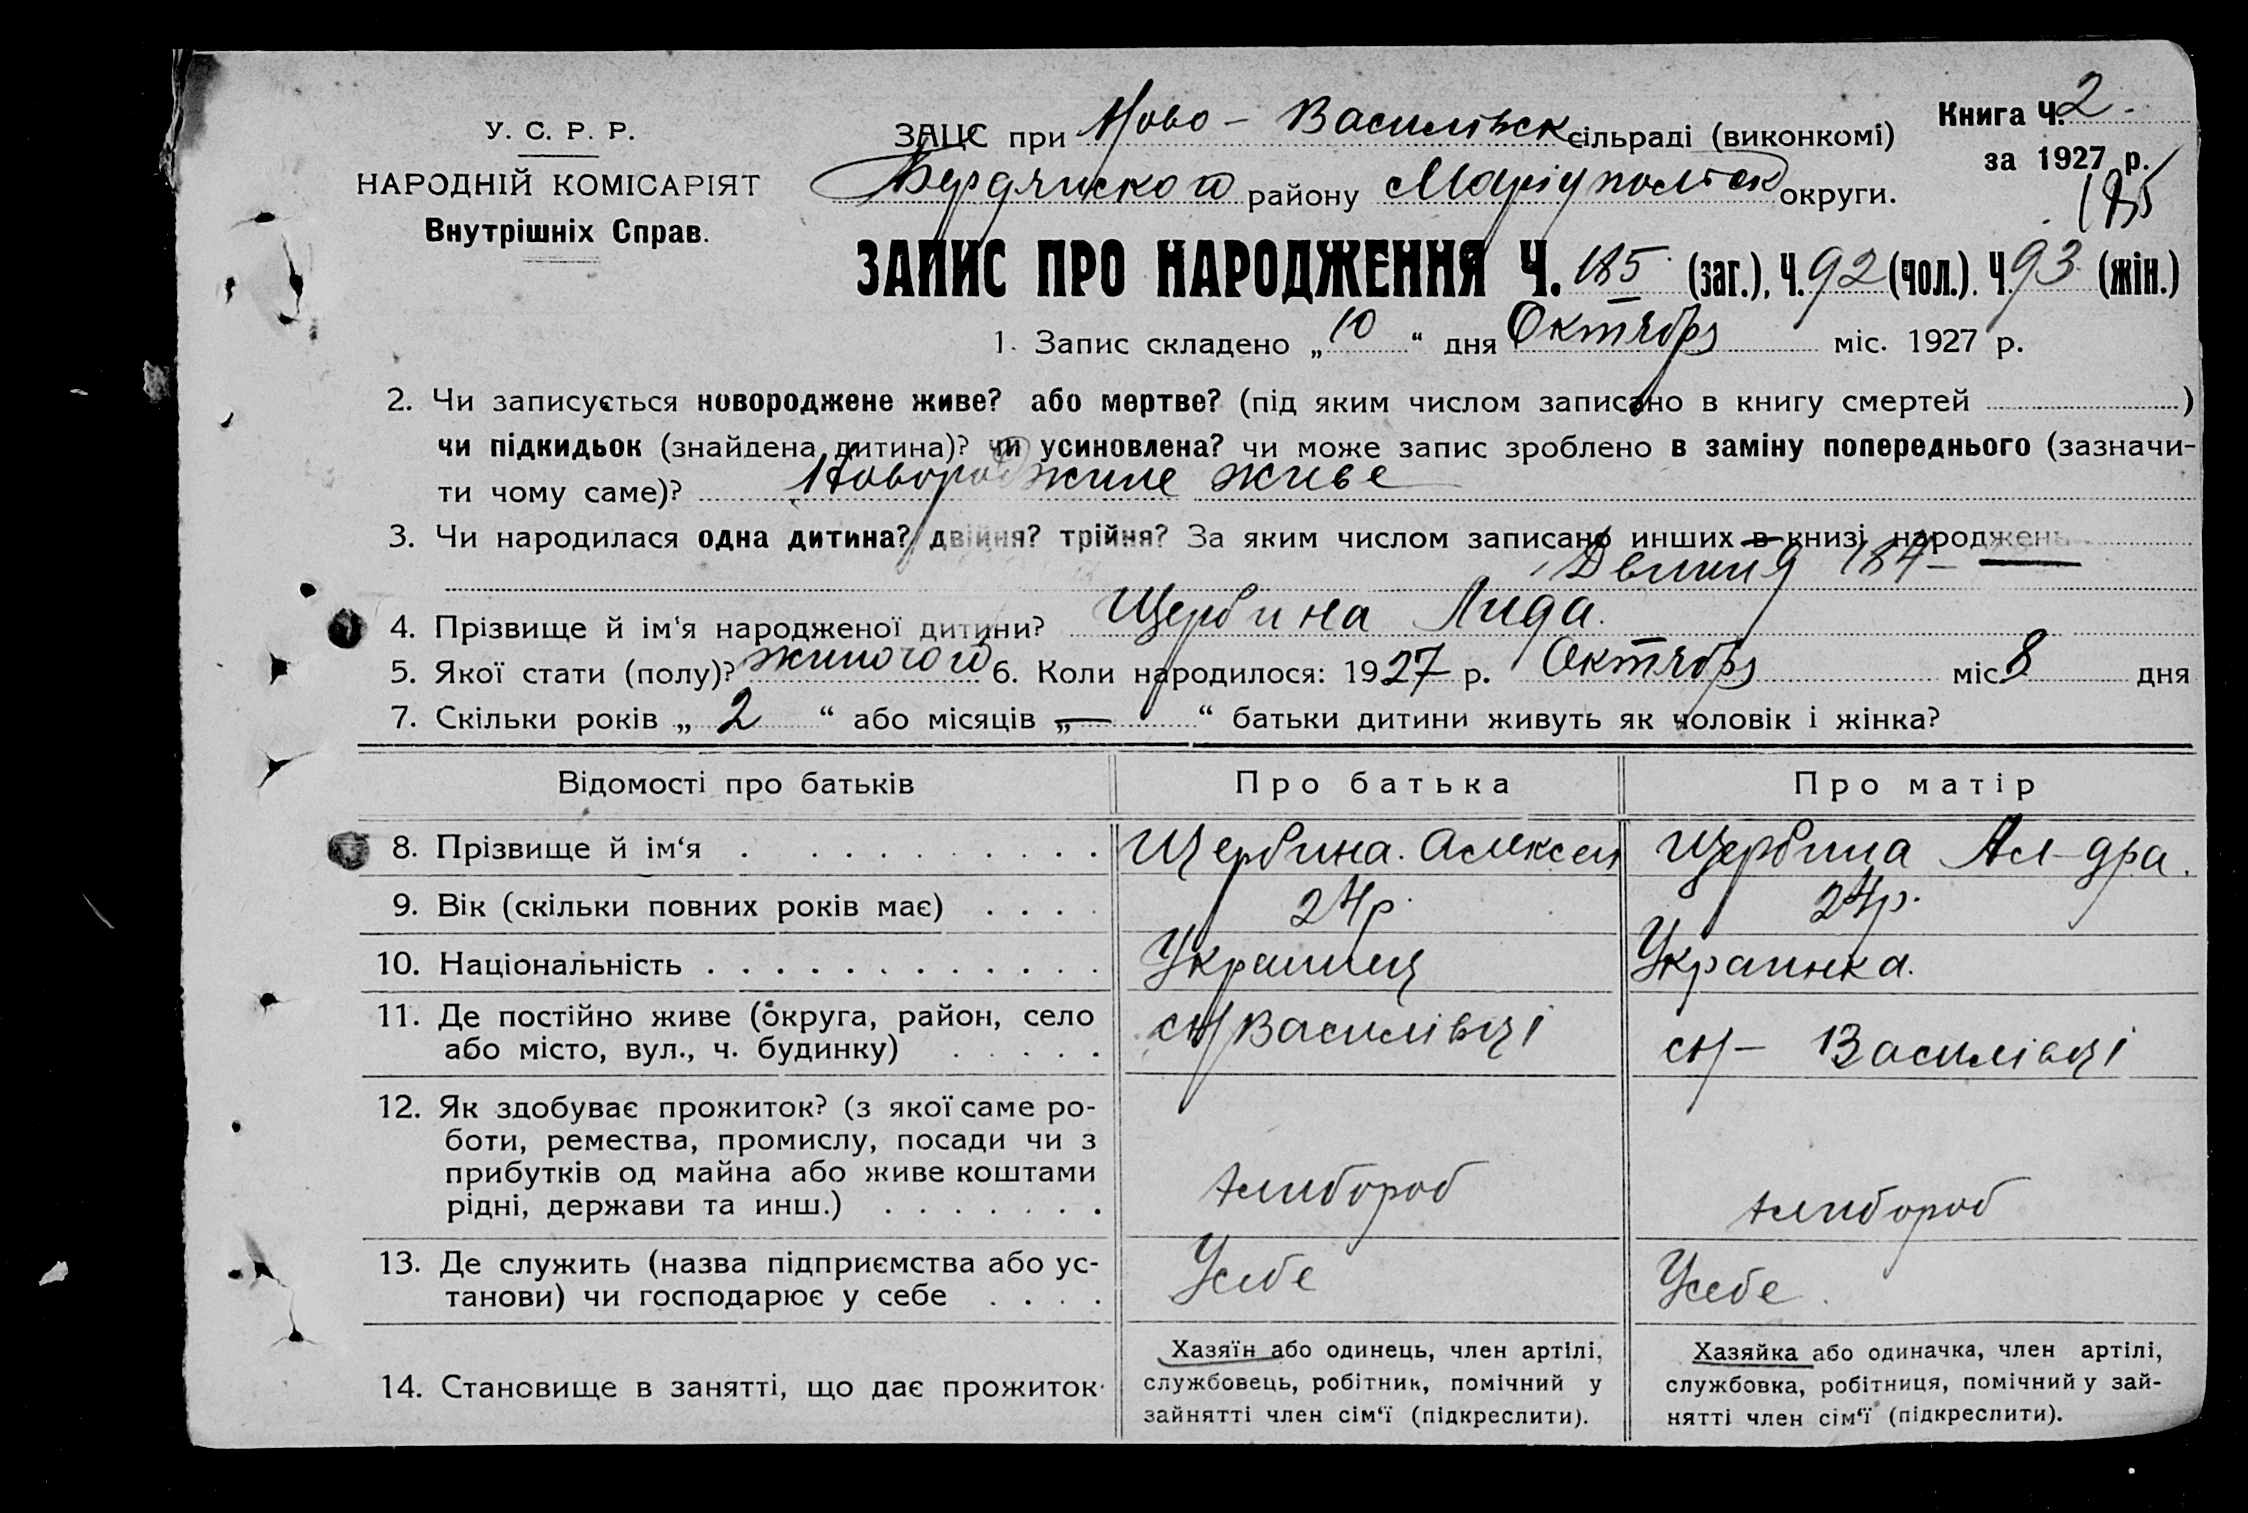 У. С. Р. Р.
НАРОДНІЙ КОМІСАРІЯТ
Внутрішніх Справ.
ЗАЦС при Ново - Васильівск сільраді (виконкомі)
Бердянского району Маріупольск округи.
Книга Ч. 2.
за 1927 р.
185
ЗАПИС ПРО НАРОДЖЕННЯ Ч. 185 (заг.), Ч. 92 (чол.). Ч. 93 (жін.)
1. Запис складено „10“ дня Октября міс. 1927 р.
2. Чи записується новороджене живе? або мертве? (під яким числом записано в книгу смертей )
чи підкидьок (знайдена дитина)? чи усиновлена? чи може запис зроблено в заміну попереднього (зазначи-
ти чому саме)? Новороджине живе
3. Чи народилася одна дитина? двійня? трійня? За яким числом записано инших в книзі народжень
Двийня 184 —
4. Прізвище й ім'я народженої дитини? Щербина Лида.
5. Якої стати (полу)? жиночого 6. Коли народилося: 1927 р. Октября міс 8 дня
7. Скільки років „ 2 “ або місяців „ — “ батьки дитини живуть як чоловік і жінка?
Відомості про батьків Про батька Про матір
8. Прізвище й ім‘я Щербина. Алексей Щербина Ал-дра.
9. Вік (скільки повних років має) 24р. 24р.
10. Національність Украинец Украинка.
11. Де постійно живе (округа, район, село
або місто, вул., ч. будинку) сН Василівці сН- Василівці
12. Як здобуває прожиток? (з якої саме ро-
боти, ремества, промислу, посади чи з
прибутків од майна або живе коштами
рідні, держави та инш.) хлибороб хлибороб
13. Де служить (назва підприємства або ус-
танови) чи господарює у себе Усебе Усебе.
14. Становище в занятті, що дає прожиток
Хазяїн або одинець, член артілі,
службовець, робітник, помічний у
зайнятті член сім‘ї (підкреслити).
Хазяйка або одиначка, член артілі,
службовка, робітниця, помічний у зай-
нятті член сім‘ї (підкреслити).